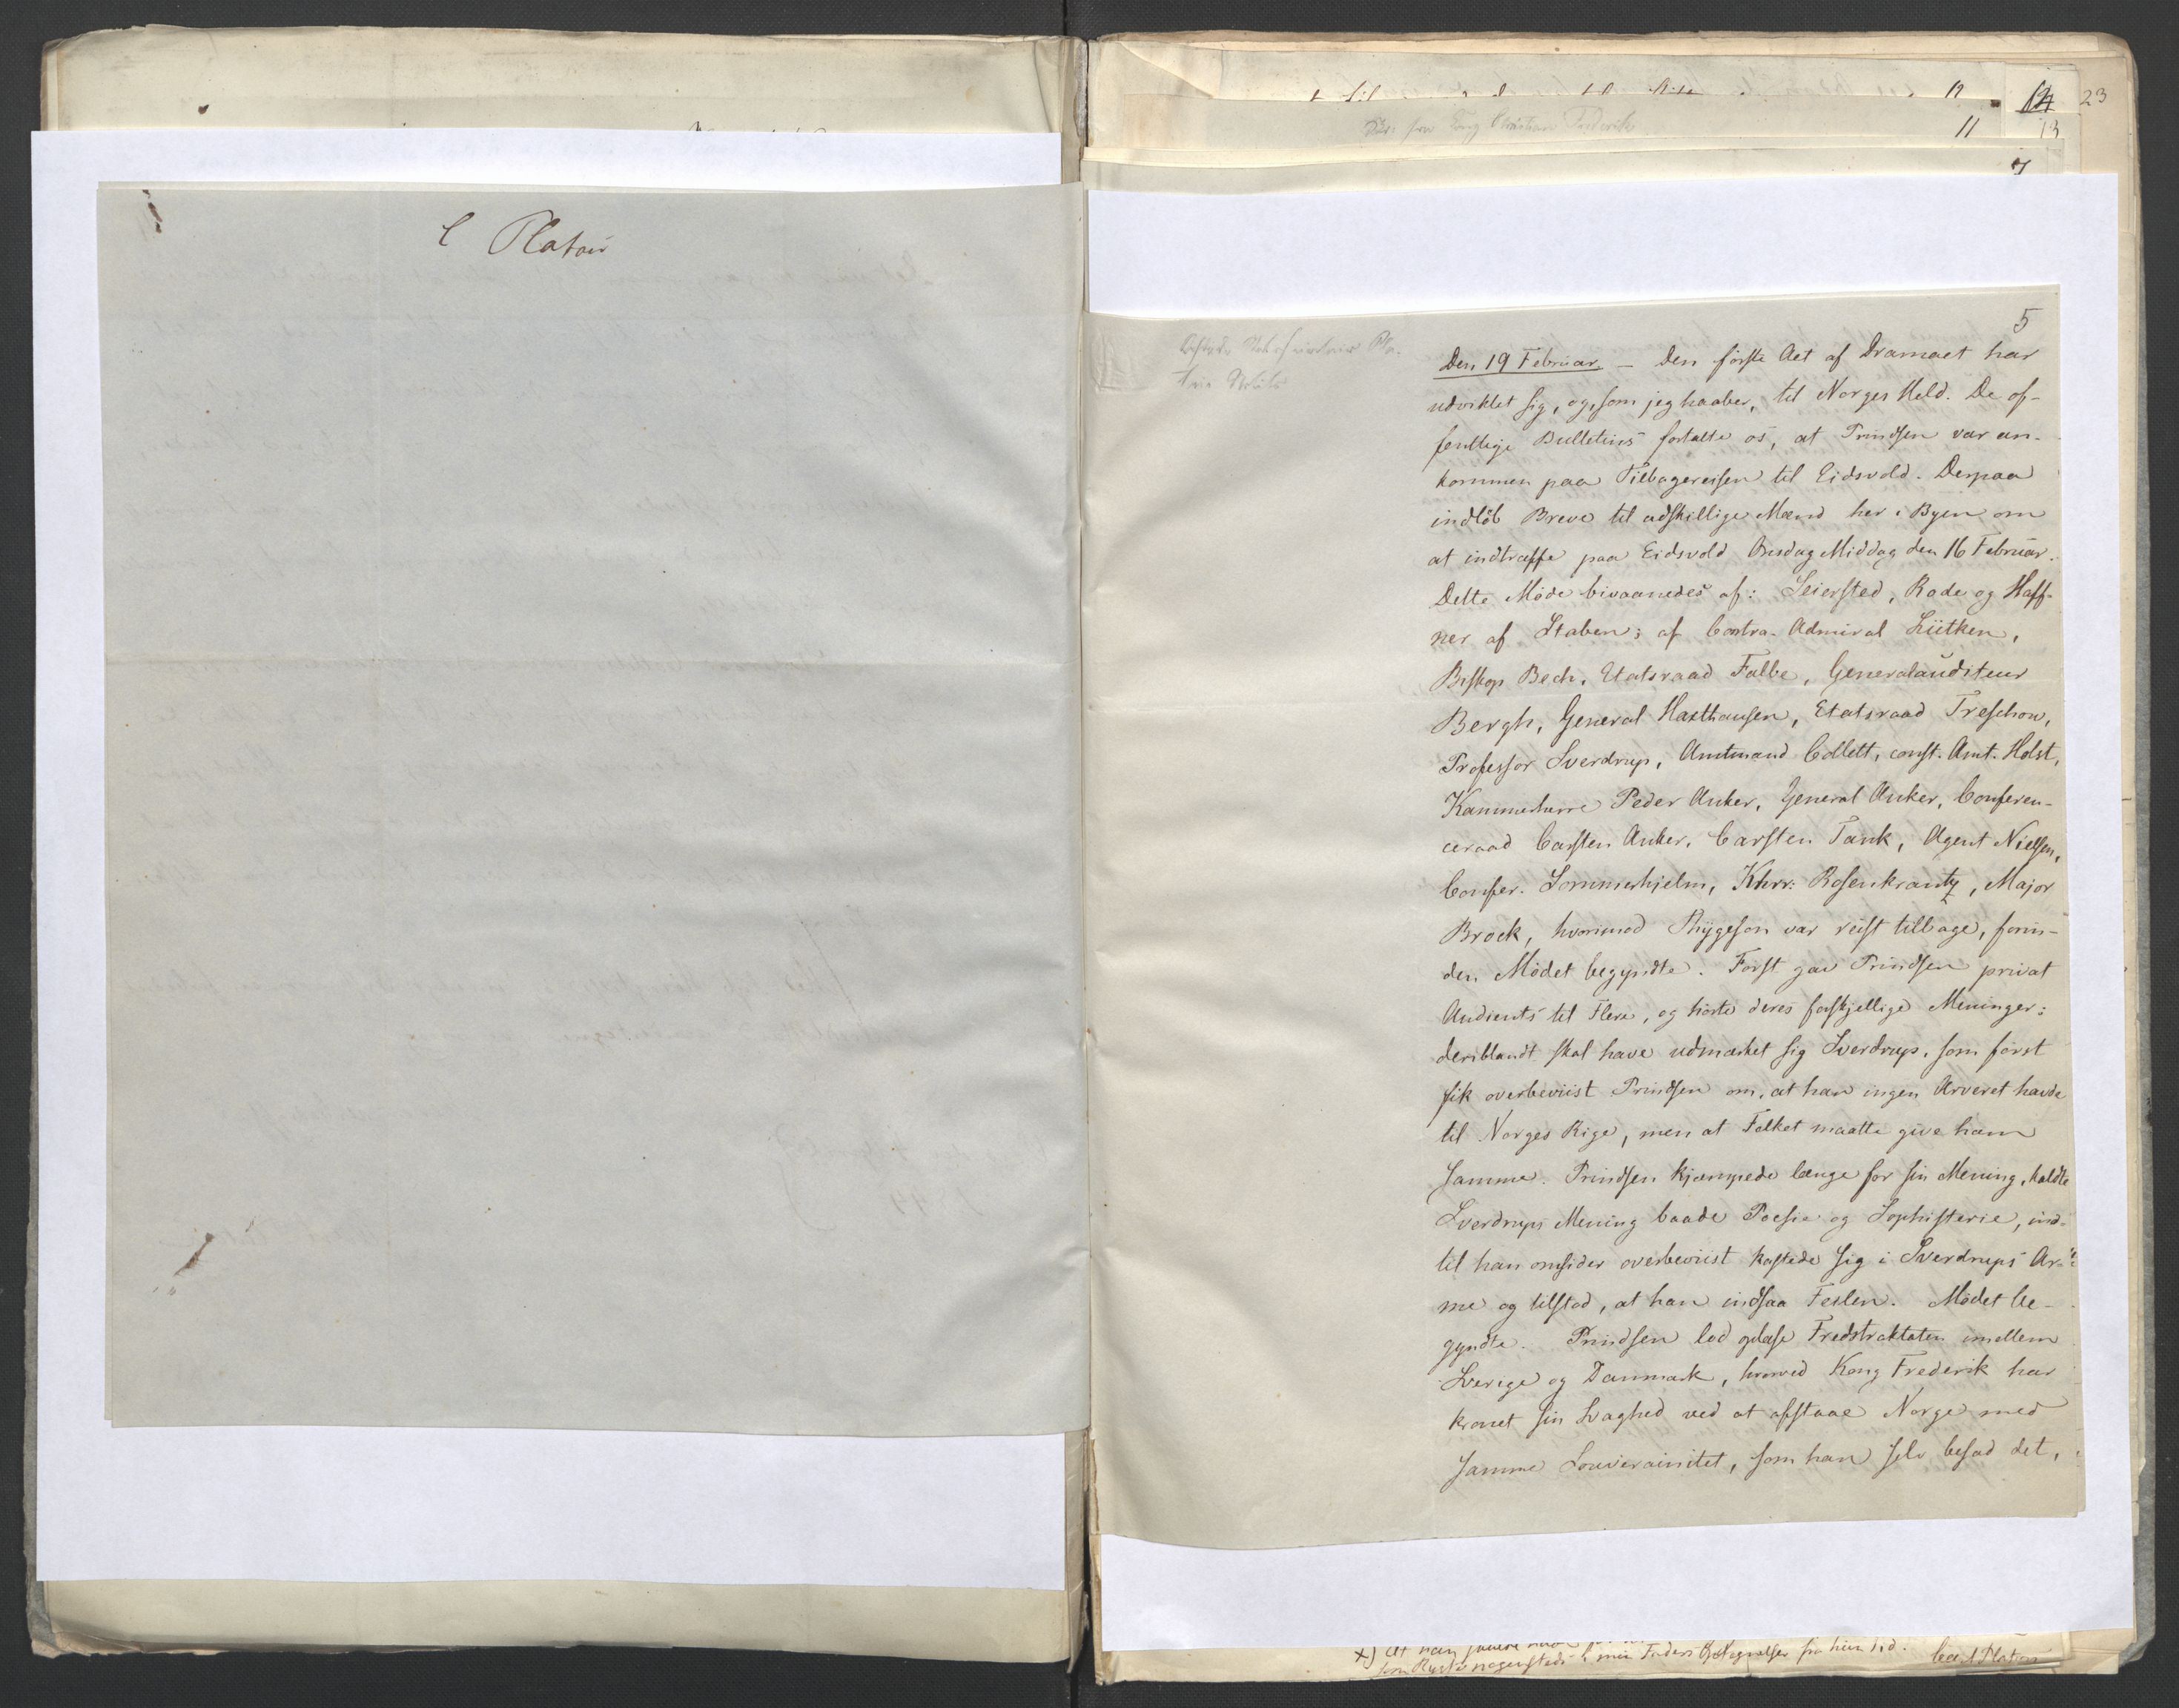 C Platou
23
14
13
11
7
5
Den 19 Februar. — Den förste Act af Dramaet har
udviklet sig, og, som jeg haaber, til Norges Held. De of-
fentlige Bulletins fortalte os, at Prindsen var an-
kommen paa Tilbagereisen til Eidsvold. Derpaa
indlöb Breve til adskillige Mænd her i Byen om
at indtræffe paa Eidsvold Onsdag Middag den 16 Februar.
Dette Möde bivaanedes af: Seiersted, Rode og Haff-
ner af Staben; af Contra-Admiral Lütken,
Biskop Bech, Etatsraad Falbe, Generalauditeur
Bergh, General Haxthausen, Etatsraad Treschow,
Professor Sverdrup, Amtmand Collett, const. Amt. Holst,
Kammerherre Peder Anker, General Anker, Conferen-
ceraad Carsten Anker, Carsten Tank, Agent Nielsen,
Confer. Sommerhjelm, Khrr: Rosenkrantz, Major
Brock, hvorimod Thygeson var reist tilbage, forin-
den Mödet begyndte. Först gav Prindsen privat
Audients til Flere, og hörte deres forskjellige Meninger;
deriblandt skal have udmærket sig Sverdrup, som först
fik overbeviist Prindsen om, at han ingen Arveret havde
til Norges Rige, men at Folket maatte give ham
samme. Prindsen kjæmpede længe for sin Mening, kaldte
Sverdrups Mening baade Poesie og Sophisterie, ind-
til han omsider overbeviist kastede sig i Sverdrups Ar-
me og tilstod, at han indsaa Feilen. Mödet be-
gyndte. Prindsen lod oplæse Fredstraktaten imellem
Sverige og Danmark, hvorved Kong Frederik har
kronet sin Svaghed ved at afstaae Norge med
samme Souverainitet, som han selv besad det,
x) At han
min Faders Optegnelser fra hiin Tid. Carl Platou